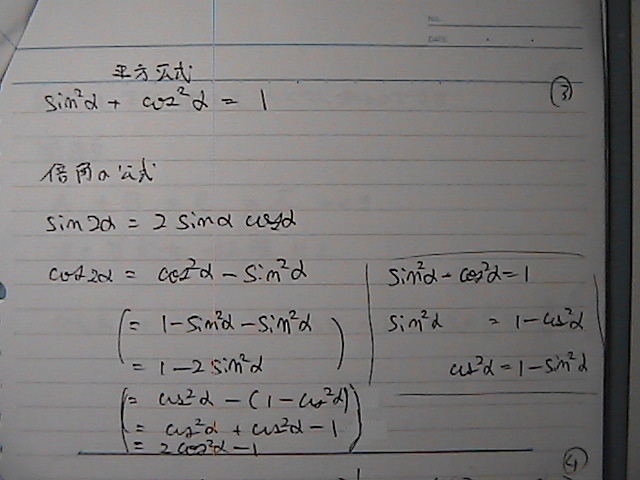 NO.
DATE
平方公式
sin²α + cos²α = 1
③
倍角の公式
sin2α = 2 sinα cosα
cos2α = cos²α - sin²α
= 1 - sin²α - sin²α
= 1 - 2 sin²α
= cos²α - (1 - cos²α)
= cos²α + cos²α - 1
= 2cos²α - 1
sin²α - cos²α = 1
sin²α = 1 - cos²α
cos²α = 1 - sin²α
④